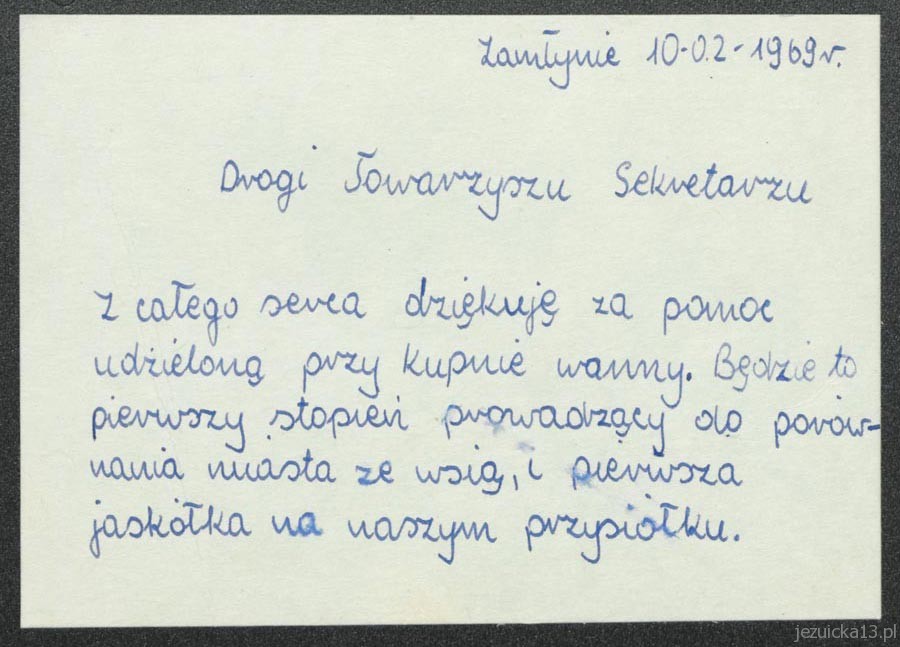 Zamłynie 10-02-1969r.
Drogi Towarzyszu Sekretarzu
Z całego serca dziękuję za pomoc
udzieloną przy kupnie wanny. Będzie to
pierwszy stopień prowadzący do porów-
nania miasta ze wsią, i pierwsza
jaskółka na naszym przysiółku.
jezuicka13.pl